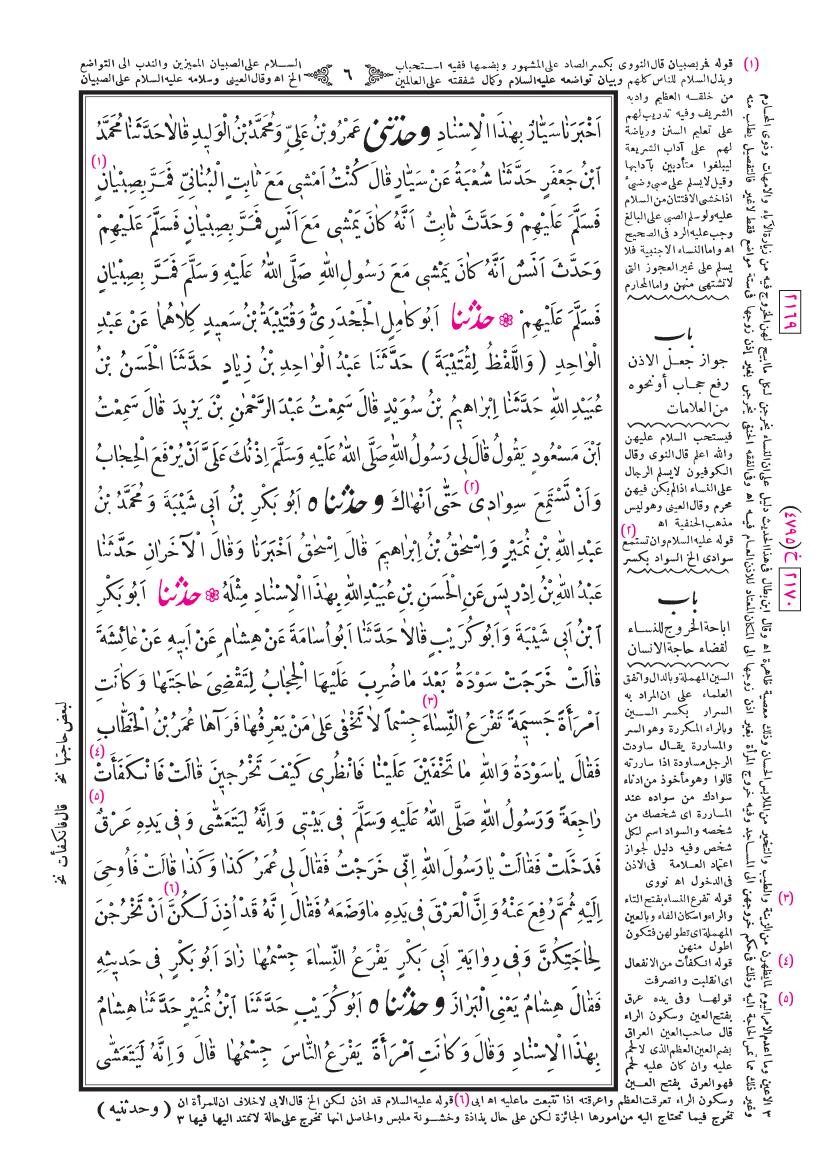 (١) قوله فمر بصبيان قال النووى بكسر الصاد على المشهور وبضمها ففيه استحباب
٦
السلام على الصبيان المميزين والندب الى التواضع
وبذل السلام للناس كلهم وبيان تواضعه عليه السلام وكمال شفقته على العالمين
الخ اه وقال العينى وسلامه عليه السلام على الصبيان
من خلقه العظيم وادبه
الشريف وفيه تدريب لهم
على تعليم السنن ورياضة
لهم على آداب الشريعة
ليبلغوا متأدبين بآدابها
وقيل لا يسلم على صبى وضىء
اذا خشى الافتتان من السلام
عليه ولو سلم الصبى على البالغ
وجب عليه الرد فى الصحيح
اه واما النساء الاجنبية فلا
يسلم على غير العجوز التى
لا تشتهى منهن واما المحارم
باب
جواز جعل الاذن
رفع حجاب أو نحوه
من العلامات
فيستحب السلام عليهن
والله اعلم قال النوى وقال
الكوفيون لا يسلم الرجال
على النساء اذا لم يكن فيهن
محرم وقال العينى وهو ليس
مذهب الحنفية اه
(٢) قوله عليه السلام وان تستمع
سوادى الخ السواد بكسر
باب
اباحة الخروج للنساء
لقضاء حاجة الانسان
السين المهملة وبالدال واتفق
العلماء على ان المراد به
السرار بكسر السين
وبالراء المكررة وهو السر
والمساررة يقال ساودت
الرجل مساودة اذا ساررته
قالوا وهو مأخوذ من ادناء
سوادك من سواده عند
المساررة اى شخصك من
شخصه والسواد اسم لكل
شخص وفيه دليل لجواز
اعتماد العلامة فى الاذن
فى الدخول اه نووى
(٣) قوله تفرع النساء بفتح التاء
والراء واسكان الفاء وبالعين
المهملة اى تطولهن فتكون
اطول منهن
(٤) قوله انكفأت من الانفعال
اى انقلبت وانصرفت
(٥) قولها وفى يده عرق
بفتح العين وسكون الراء
قال صاحب العين العراق
بضم العين العظم الذى لا لحم
عليه وان كان عليه لحم
فهو العرق بفتح العين
٢١٦٩
خ (٤٧٩٥)
٢١٧٠
اَخْبَرَنَا سَيَّارٌ بِهٰذَا الْاِسْنَادِ وحَدَّثَنِى عَمْرُو بْنُ عَلِىٍّ وَمُحَمَّدُ بْنُ الْوَلِيدِ قَالاَ حَدَّثَنَا مُحَمَّدُ
ابْنُ جَعْفَرٍ حَدَّثَنَا شُعْبَةُ عَنْ سَيَّارٍ قَالَ كُنْتُ اَمْشِى مَعَ ثَابِتٍ الْبُنَانِىِّ فَمَرَّ بِصِبْيَانٍ (١)
فَسَلَّمَ عَلَيْهِمْ وَحَدَّثَ ثَابِتٌ اَنَّهُ كَانَ يَمْشِى مَعَ اَنَسٍ فَمَرَّ بِصِبْيَانٍ فَسَلَّمَ عَلَيْهِمْ
وَحَدَّثَ اَنَسٌ اَنَّهُ كَانَ يَمْشِى مَعَ رَسُولِ اللهِ صَلَّى اللهُ عَلَيْهِ وَسَلَّمَ فَمَرَّ بِصِبْيَانٍ
فَسَلَّمَ عَلَيْهِمْ ❁ حَدَّثَنَا اَبُو كَامِلٍ الْجَحْدَرِىُّ وَقُتَيْبَةُ بْنُ سَعِيدٍ كِلاَهُمَا عَنْ عَبْدِ
الْوَاحِدِ ( وَاللَّفْظُ لِقُتَيْبَةَ ) حَدَّثَنَا عَبْدُ الْوَاحِدِ بْنُ زِيَادٍ حَدَّثَنَا الْحَسَنُ بْنُ
عُبَيْدِ اللهِ حَدَّثَنَا اِبْرَاهِيمُ بْنُ سُوَيْدٍ قَالَ سَمِعْتُ عَبْدَ الرَّحْمٰنِ بْنَ يَزِيدَ قَالَ سَمِعْتُ
ابْنَ مَسْعُودٍ يَقُولُ قَالَ لِى رَسُولُ اللهِ صَلَّى اللهُ عَلَيْهِ وَسَلَّمَ اِذْنُكَ عَلَىَّ اَنْ يُرْفَعَ الْحِجَابُ
وَاَنْ تَسْتَمِعَ سِوَادِى (٢) حَتّٰى اَنْهَاكَ وحَدَّثَنَاه اَبُو بَكْرِ بْنُ اَبِى شَيْبَةَ وَمُحَمَّدُ بْنُ
عَبْدِ اللهِ بْنِ نُمَيْرٍ وَاِسْحٰقُ بْنُ اِبْرَاهِيمَ قَالَ اِسْحٰقُ اَخْبَرَنَا وَقَالَ الْآخَرَانِ حَدَّثَنَا
عَبْدُ اللهِ بْنُ اِدْرِيسَ عَنِ الْحَسَنِ بْنِ عُبَيْدِ اللهِ بِهٰذَا الْاِسْنَادِ مِثْلَهُ ❁ حَدَّثَنَا اَبُو بَكْرِ
ابْنُ اَبِى شَيْبَةَ وَاَبُو كُرَيْبٍ قَالاَ حَدَّثَنَا اَبُو اُسَامَةَ عَنْ هِشَامٍ عَنْ اَبِيهِ عَنْ عَائِشَةَ
قَالَتْ خَرَجَتْ سَوْدَةُ بَعْدَ مَا ضُرِبَ عَلَيْهَا الْحِجَابُ لِتَقْضِىَ حَاجَتَهَا وَكَانَتِ
امْرَأَةً جَسِيمَةً تَفْرَعُ النِّسَاءَ (٣) جِسْماً لاَ تَخْفٰى عَلٰى مَنْ يَعْرِفُهَا فَرَآهَا عُمَرُ بْنُ الْخَطَّابِ
فَقَالَ يَا سَوْدَةُ وَاللهِ مَا تَخْفَيْنَ عَلَيْنَا فَانْظُرِى كَيْفَ تَخْرُجِينَ قَالَتْ فَانْكَفَأَتْ (٤)
رَاجِعَةً وَرَسُولُ اللهِ صَلَّى اللهُ عَلَيْهِ وَسَلَّمَ فِى بَيْتِى وَاِنَّهُ لَيَتَعَشّٰى وَفِى يَدِهِ عَرْقٌ (٥)
فَدَخَلَتْ فَقَالَتْ يَا رَسُولَ اللهِ اِنِّى خَرَجْتُ فَقَالَ لِى عُمَرُ كَذَا وَكَذَا قَالَتْ فَاُوحِىَ
اِلَيْهِ ثُمَّ رُفِعَ عَنْهُ وَاِنَّ الْعَرْقَ فِى يَدِهِ مَا وَضَعَهُ فَقَالَ اِنَّهُ قَدْ اُذِنَ لَكُنَّ (٦) اَنْ تَخْرُجْنَ
لِحَاجَتِكُنَّ وَفِى رِوَايَةِ اَبِى بَكْرٍ يَفْرَعُ النِّسَاءَ جِسْمُهَا زَادَ اَبُو بَكْرٍ فِى حَدِيثِهِ
فَقَالَ هِشَامٌ يَعْنِى الْبَرَازَ وحَدَّثَنَاه اَبُو كُرَيْبٍ حَدَّثَنَا ابْنُ نُمَيْرٍ حَدَّثَنَا هِشَامٌ
بِهٰذَا الْاِسْنَادِ وَقَالَ وَكَانَتِ امْرَأَةً يَفْرَعُ النَّاسَ جِسْمُهَا قَالَ وَاِنَّهُ لَيَتَعَشّٰى
لبعض حاجتها نخ
قال فانكفأت نخ
وسكون الراء تعرقت العظم واعرقته اذا تتبعت ما عليه اه ابى (٦) قوله عليه السلام قد اذن لكن الخ قال الابى لا خلاف ان للمرأة ان
تخرج فيما تحتاج اليه من امورها الجائزة لكن على حال بذاذة وخشونة ملبس والحاصل انها تخرج على حالة لا تمتد اليها فيها ٣
( وحدثنيه )